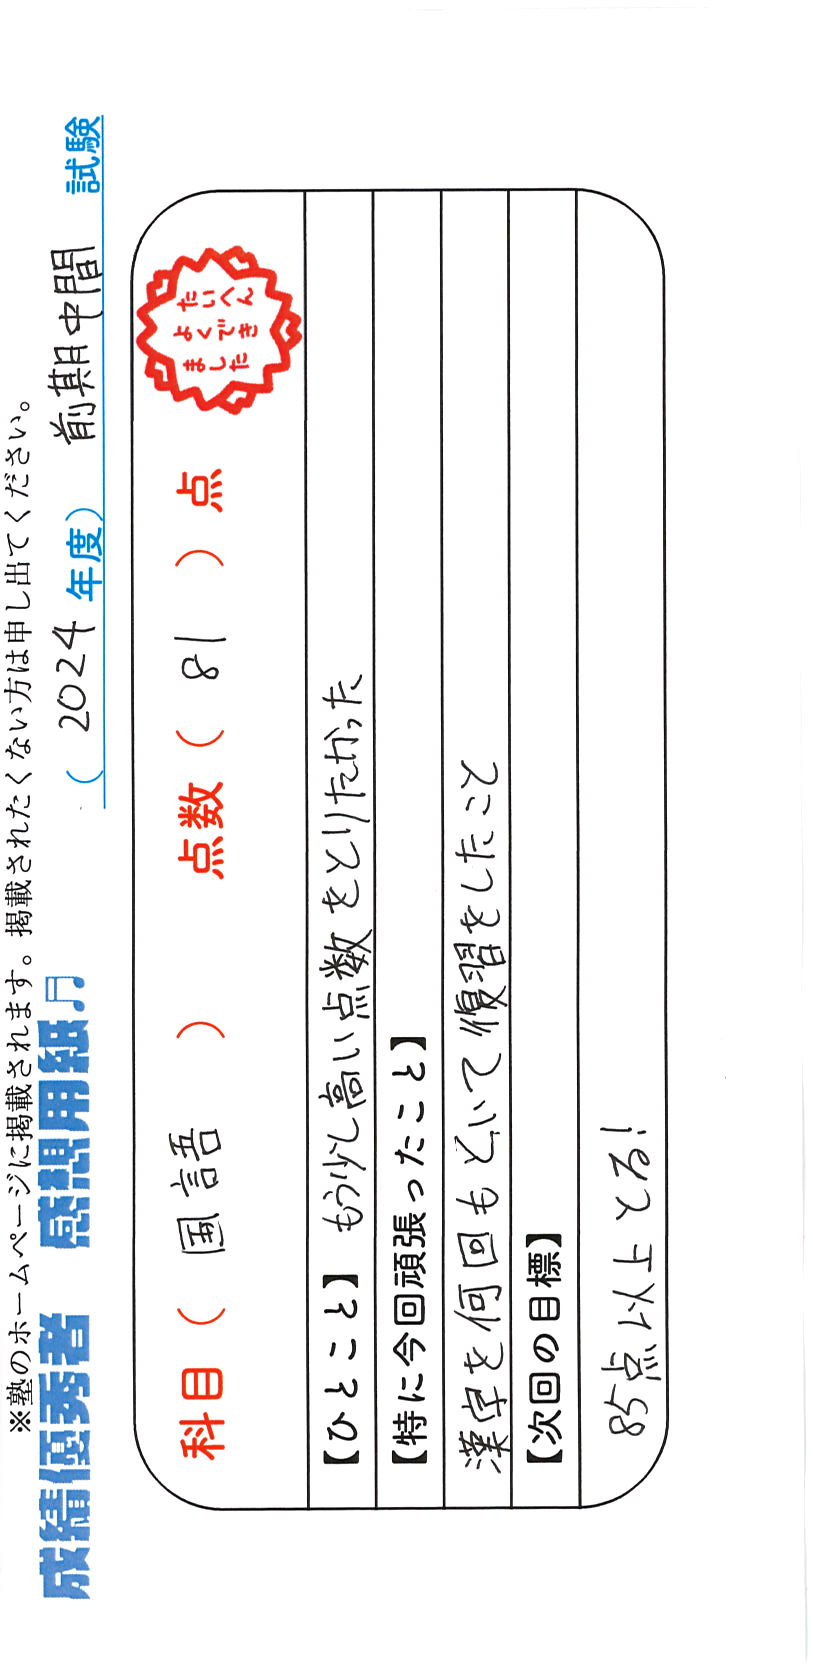 ※塾のホームページに掲載されます。掲載されたくない方は申し出てください。
成績優秀者 感想用紙♫ (2024年度) 前期中間 試験
科目( 国語 ) 点数( 81 )点
たいへん
よくでき
ました
【ひとこと】 もう少し高い点数をとりたかった
【特に今回頑張ったこと】
漢字を何回もといて復習をしたこと
【次回の目標】
85点以上とる!